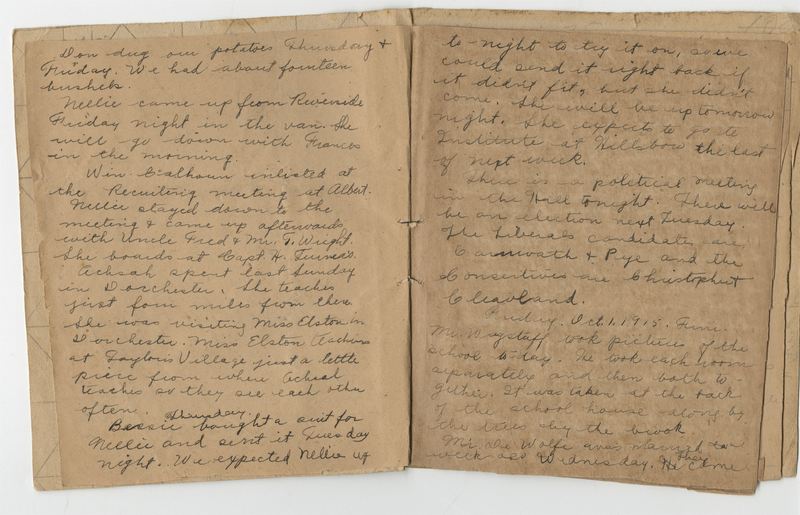 Don dug our potatoes Thursday &
Friday. We had about fourteen
bushels.
Nellie came up from Riverside
Friday night in the van. She
will go down with Frances
in the morning.
Win Calhoun inlisted at
the Recruiting meeting at Albert.
Nellie stayed down to the
meeting & came up afterwards
with Uncle Fred & Mr. T. Wright.
She boards at Capt H. Turner's.
Achsah spent last Sunday
in Dorchester. She teaches
just four miles from there
She was visiting Miss Elston in
Dorchester. Miss Elston teaches
at Taylor's Village just a little
piece from where Achsah
teaches so they see each other
often. Thursday.
Bessie bought a suit for
Nellie and sent it Tuesday
night. We expected Nellie up
to-night to try it on, so we
could send it right back if
it didn't fit, but she didn't
come. She will be up tomorrow
night. She expects to go to
Institute at Hillsboro the last
of next week.
There is a political meeting
in the Hall tonight. There will
be an election next Tuesday.
The Liberals candidates are
Carnwath & Pye and the
Consertives are Christopher &
Cleavland.
Friday. Oct. 1. 1915.
Mr. Wagstaff took pictures of the
school to-day. He took each room
separately and then both to-
gether. It was taken at the back
of the school house along by
the trees by the brook
Mr. De Wolfe was married
week ago Wednesday. They came